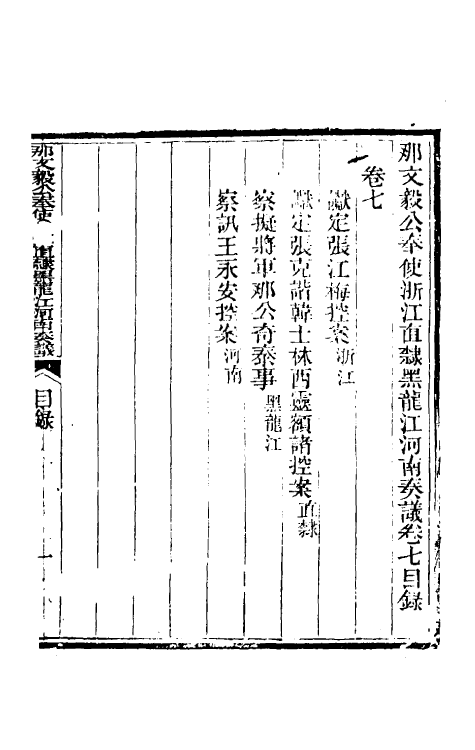 那文毅公奉使浙江直隸黑龍江河南奏議卷七目錄
卷七
讞定張江梅控案浙江
讞定張克諧韓士林西靈額諸控案直隸
察擬將軍那公奇泰事黑龍江
察訊王永安控案河南
那文毅公奉使
直隸黑龍江河南奏議
目錄
一